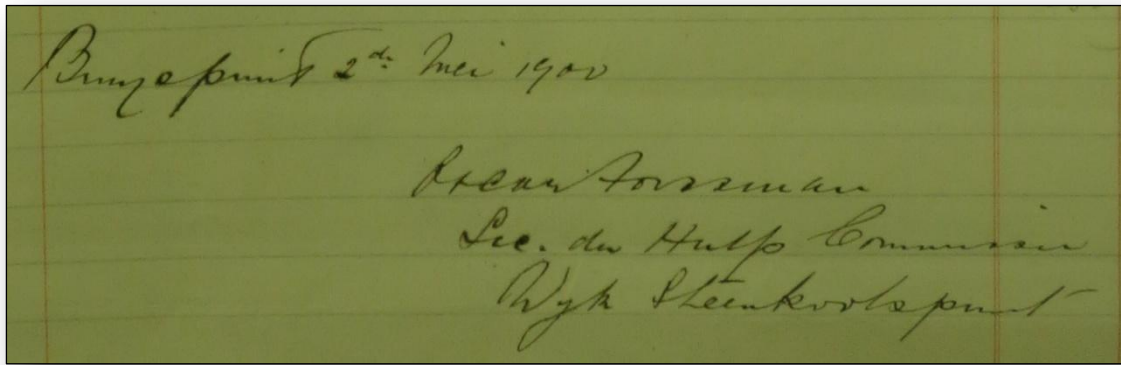 2de Mei 1900
Oscar Forssman
Sec. der Hulp Commissie
Wyk Steenkoolspruit